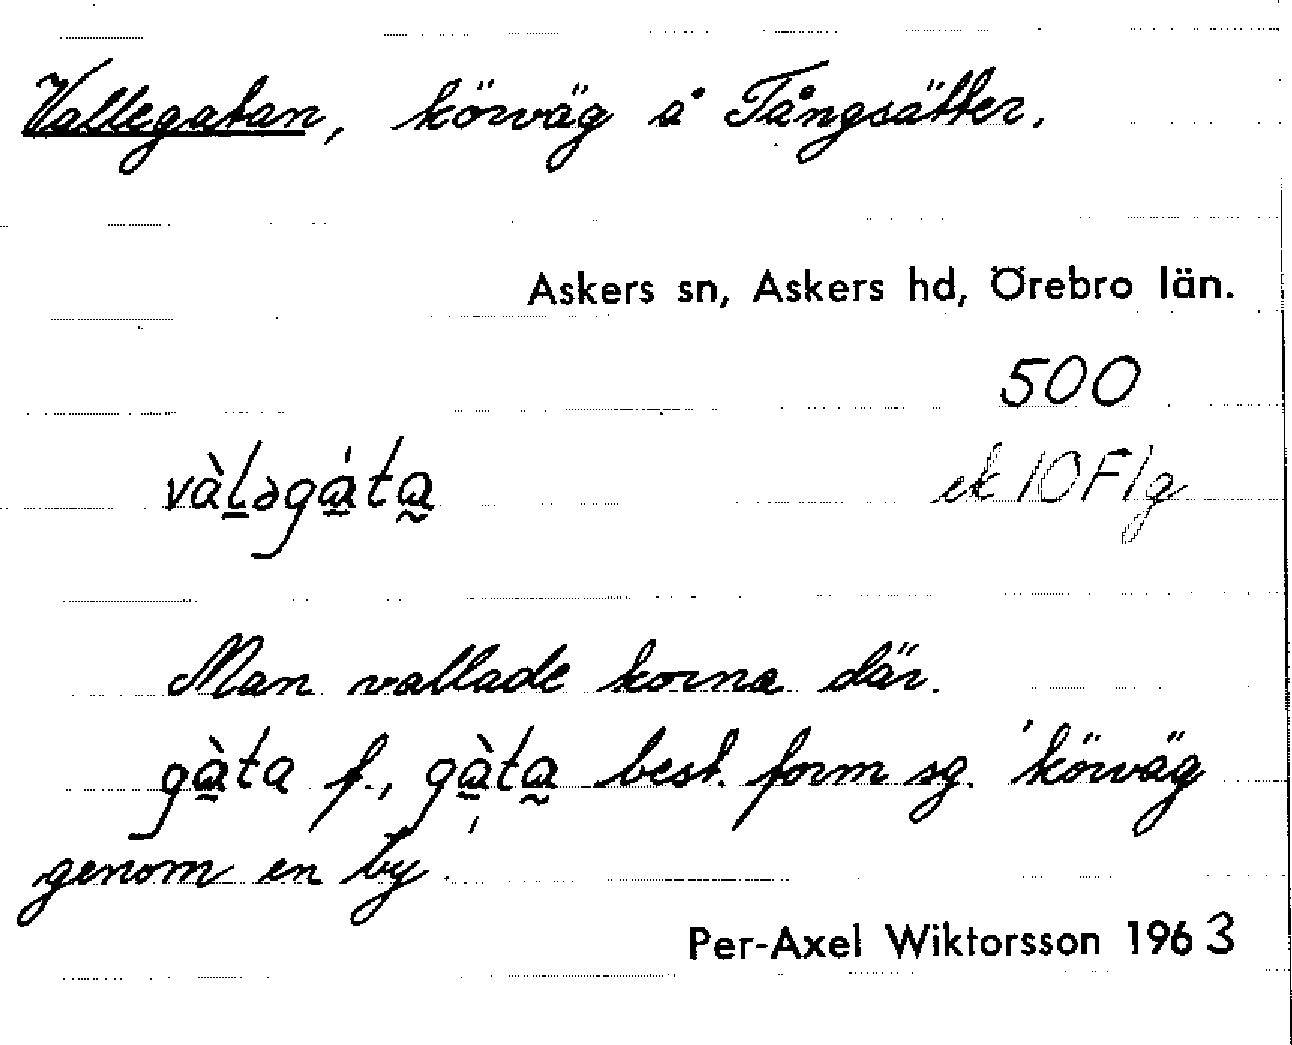 Vallegatan, körväg å Tångsätter.
Askers sn, Askers hd, Örebro län.
500
vàl̠əga̠̍ta̰
ek 10F1g
Man vallade korna där.
gà̠ta f., gà̠ta̰ best. form sg. 'körväg
genom en by'.
Per-Axel Wiktorsson 1963